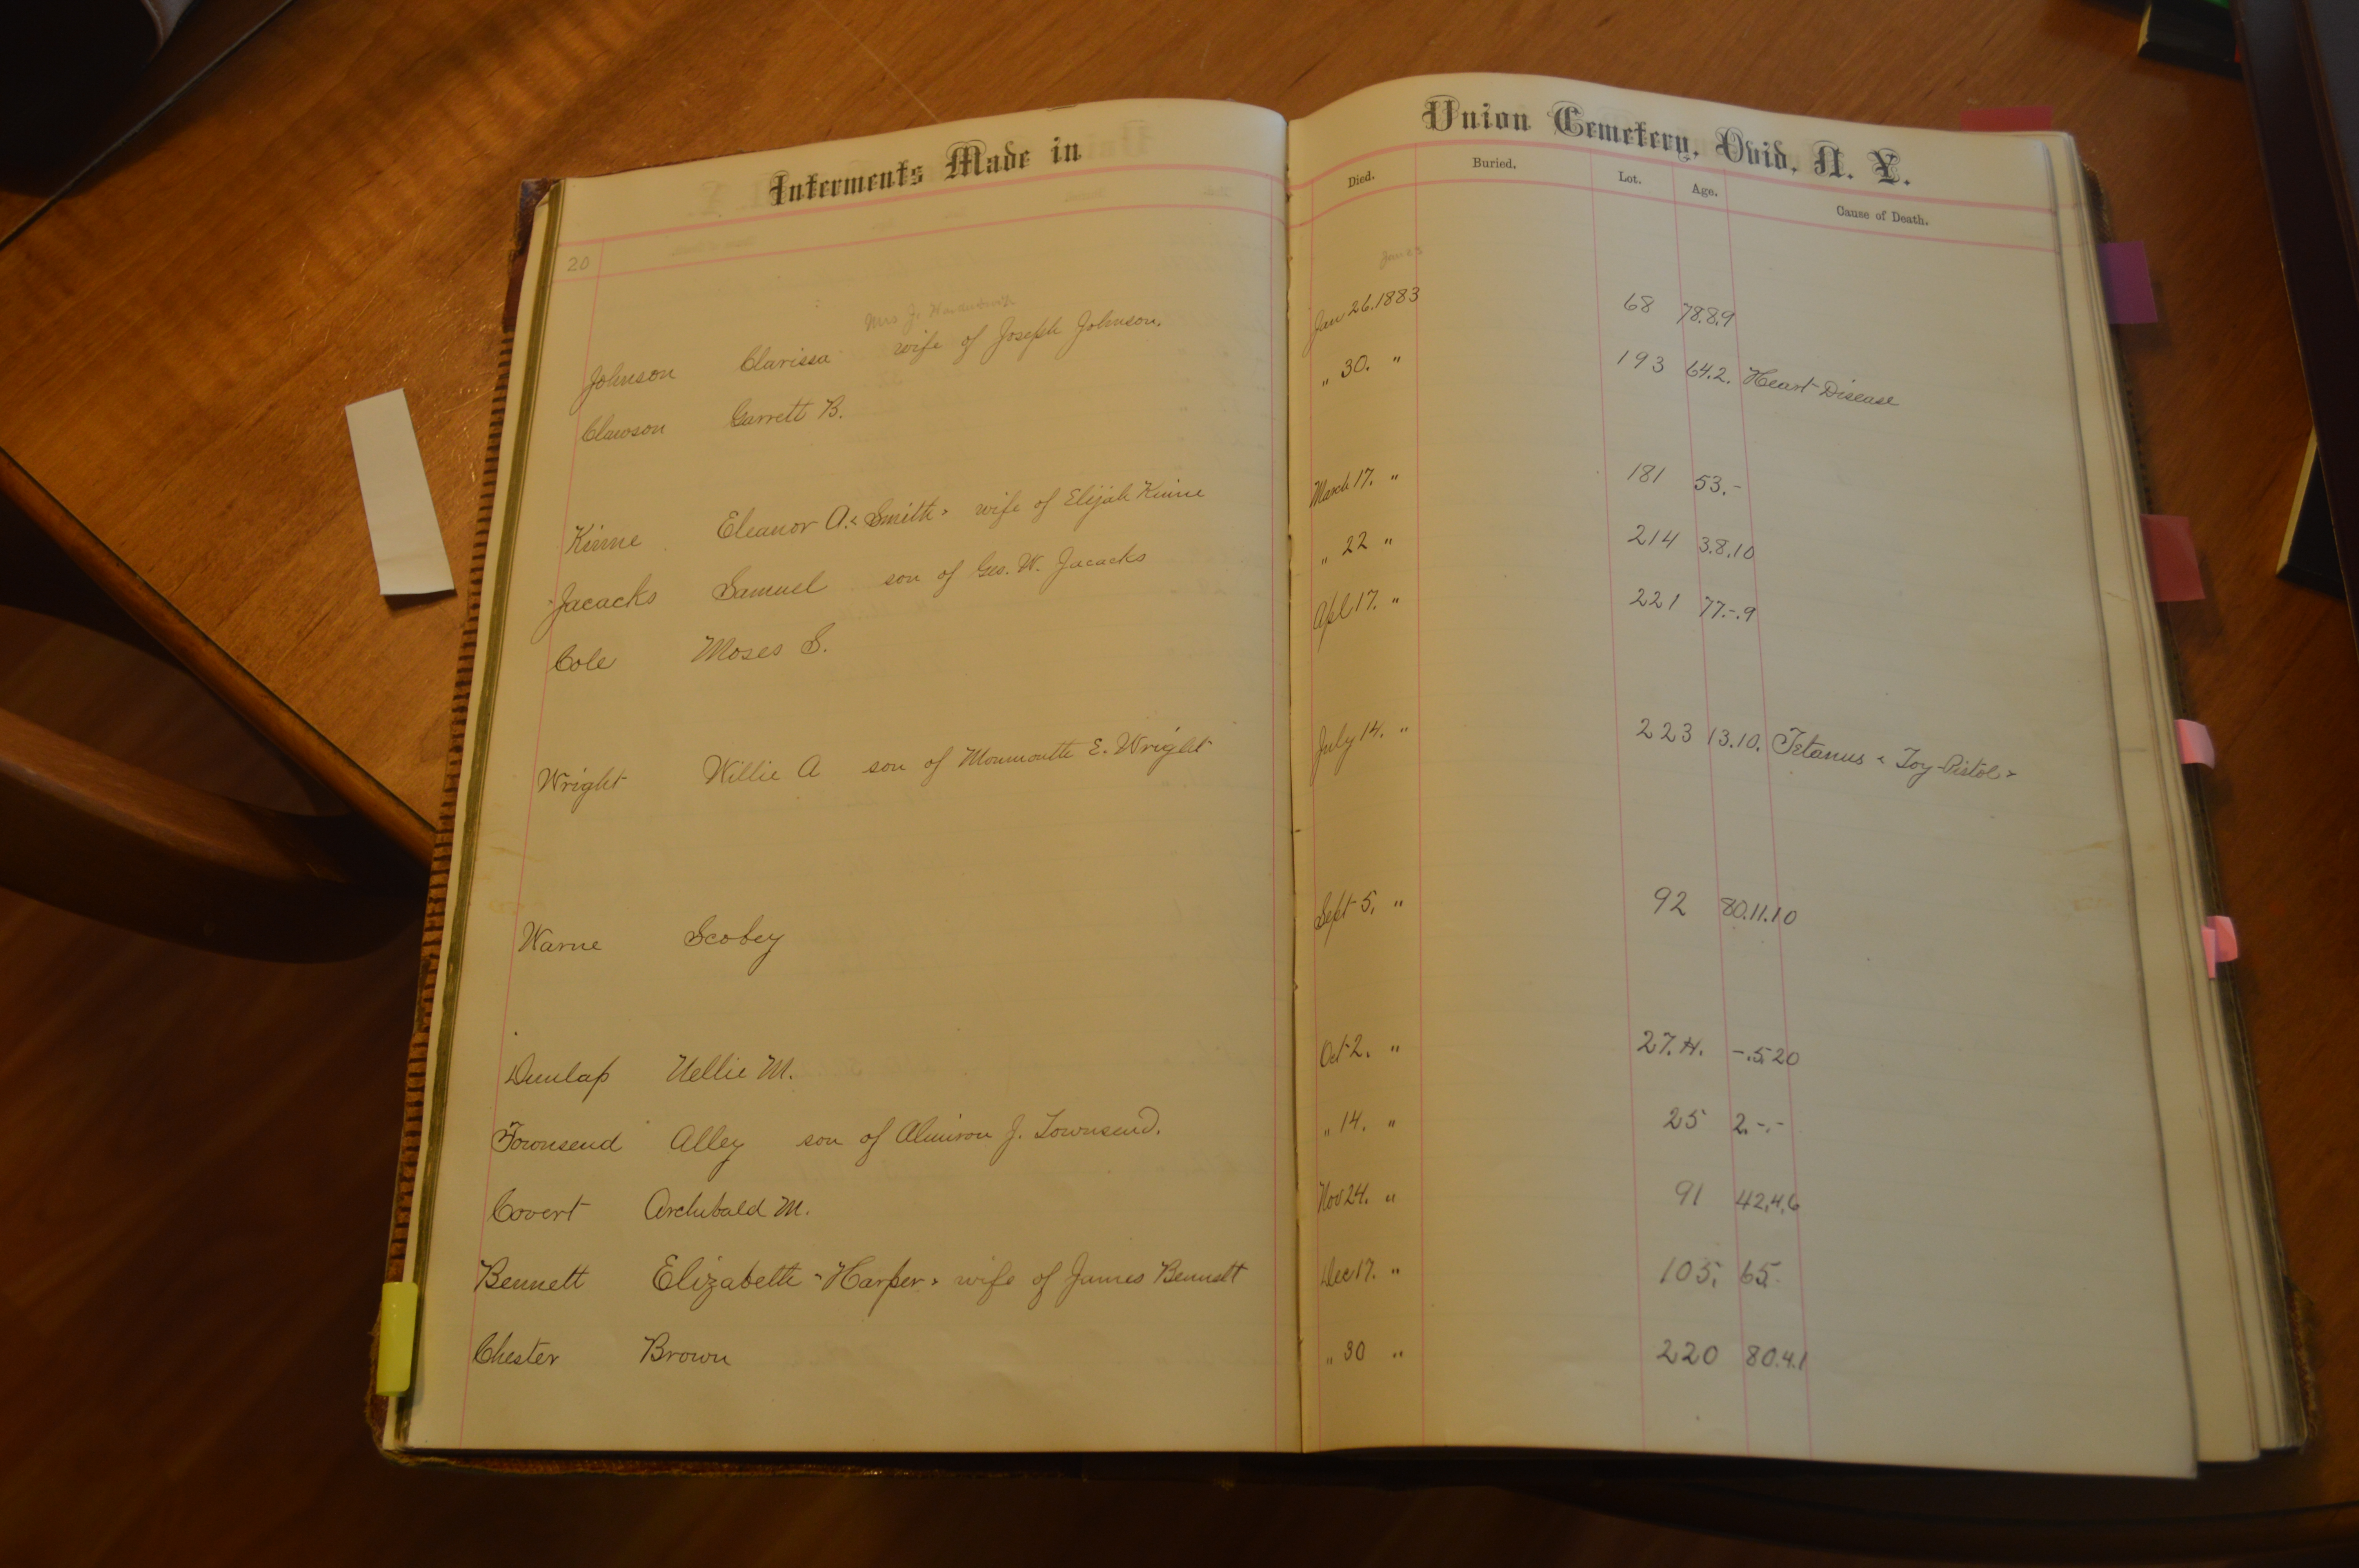 Interments Made in Union Cemetery, Ovid, N. Y.
Died. Buried. Lot. Age. Cause of Death.
20
Mrs J.
Johnson Clarissa wife of Joseph Johnson. Jan 26. 1883 68 78.8.9
Clawson Garrett B. " 30. " 193 64.2. Heart Disease
Kinne Eleanor A. "Smith" wife of Elijah Kinne March 17. " 181 53.-
Jacacks Samuel son of Geo. W. Jacacks " 22 " 214 3.8.10
Cole Moses S. Apl 17. " 221 77.-.9
Wright Willie A son of Monmouth E. Wright July 14. " 223 13.10. Tetanus "Toy-Pistol"
Warne Scobey Sept 5. " 92 80.11.10
Dunlap Nellie M. Oct 2. " 27.H. -.5.20
Townsend Alley son of Almiron J. Townsend. " 14. " 25 2.-.-
Covert Archibald M. Nov 24. " 91 42.4.6
Bennett Elizabeth "Harper" wife of James Bennett Dec 17. " 105. 65.
Chester Brown " 30 " 220 80.4.1